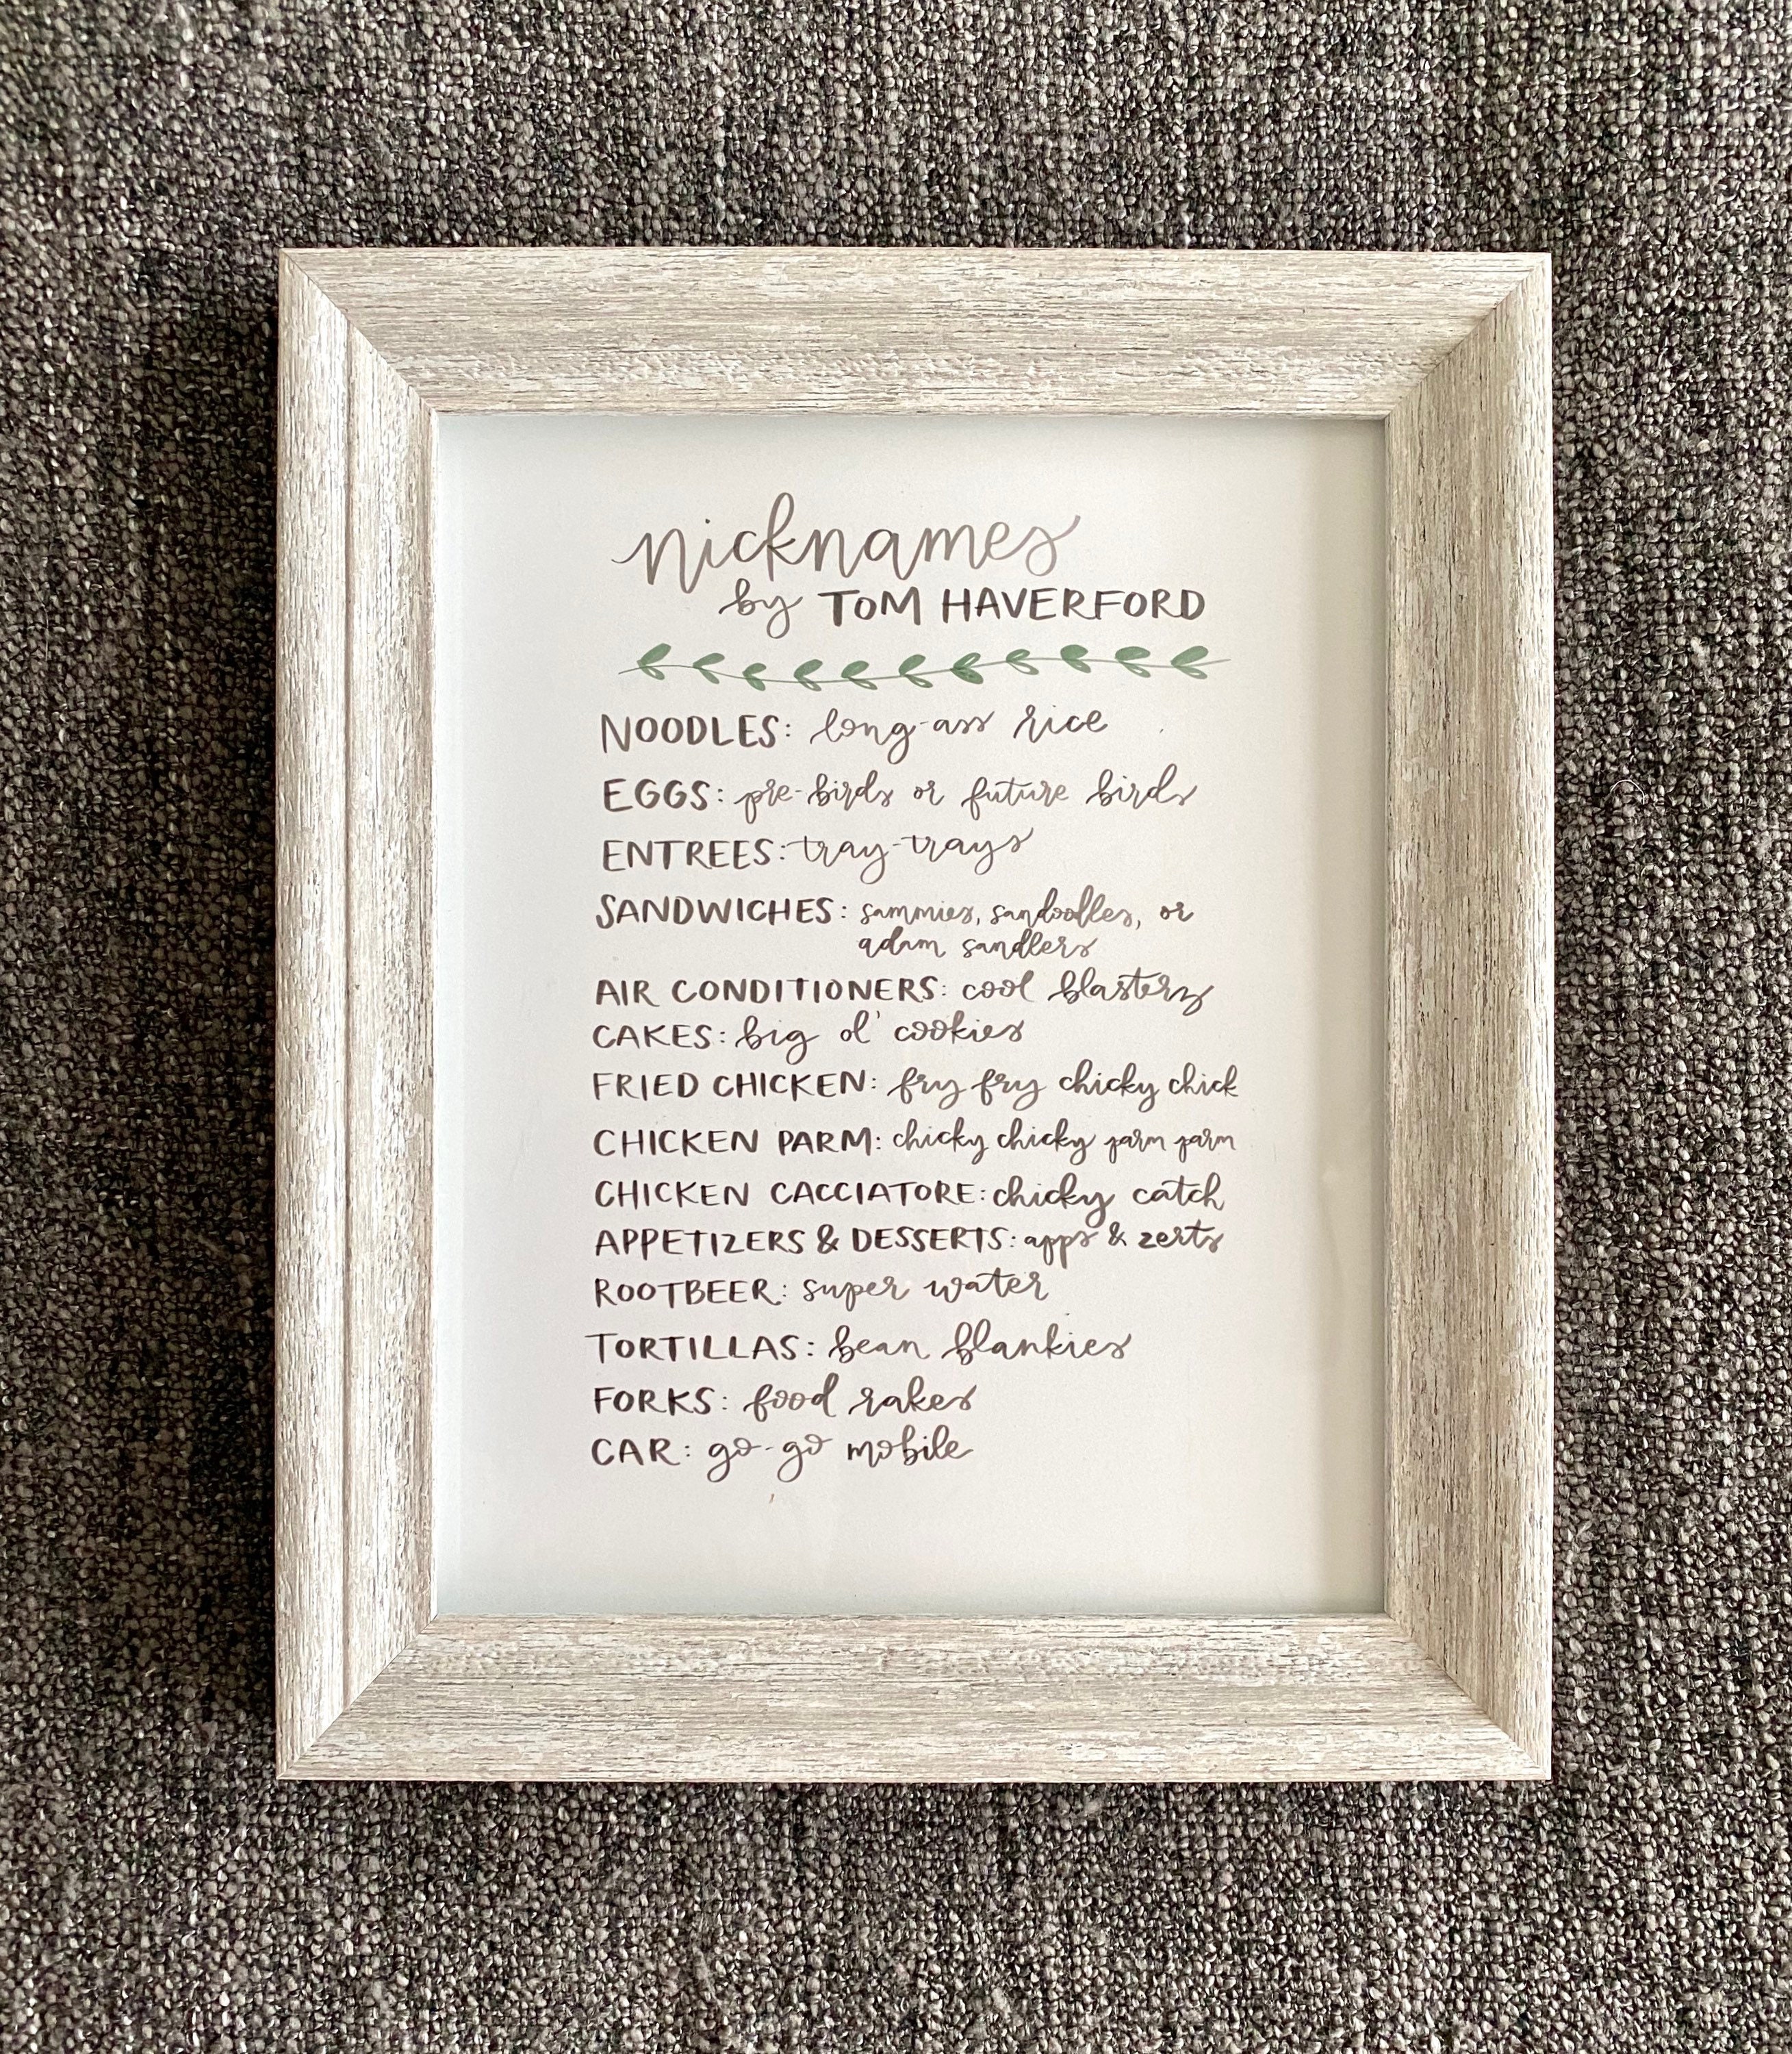 nicknames
by TOM HAVERFORD
NOODLES: long-ass rice
EGGS: pre-birds or future birds
ENTREES: tray-trays
SANDWICHES: sammies, sandoolles, or
adam sandlers
AIR CONDITIONERS: cool blasterz
CAKES: big ol' cookies
FRIED CHICKEN: fry fry chicky chick
CHICKEN PARM: chicky chicky parm parm
CHICKEN CACCIATORE: chicky catch
APPETIZERS & DESSERTS: apps & zerts
ROOTBEER: super water
TORTILLAS: bean blankies
FORKS: food rakes
CAR: go-go mobile